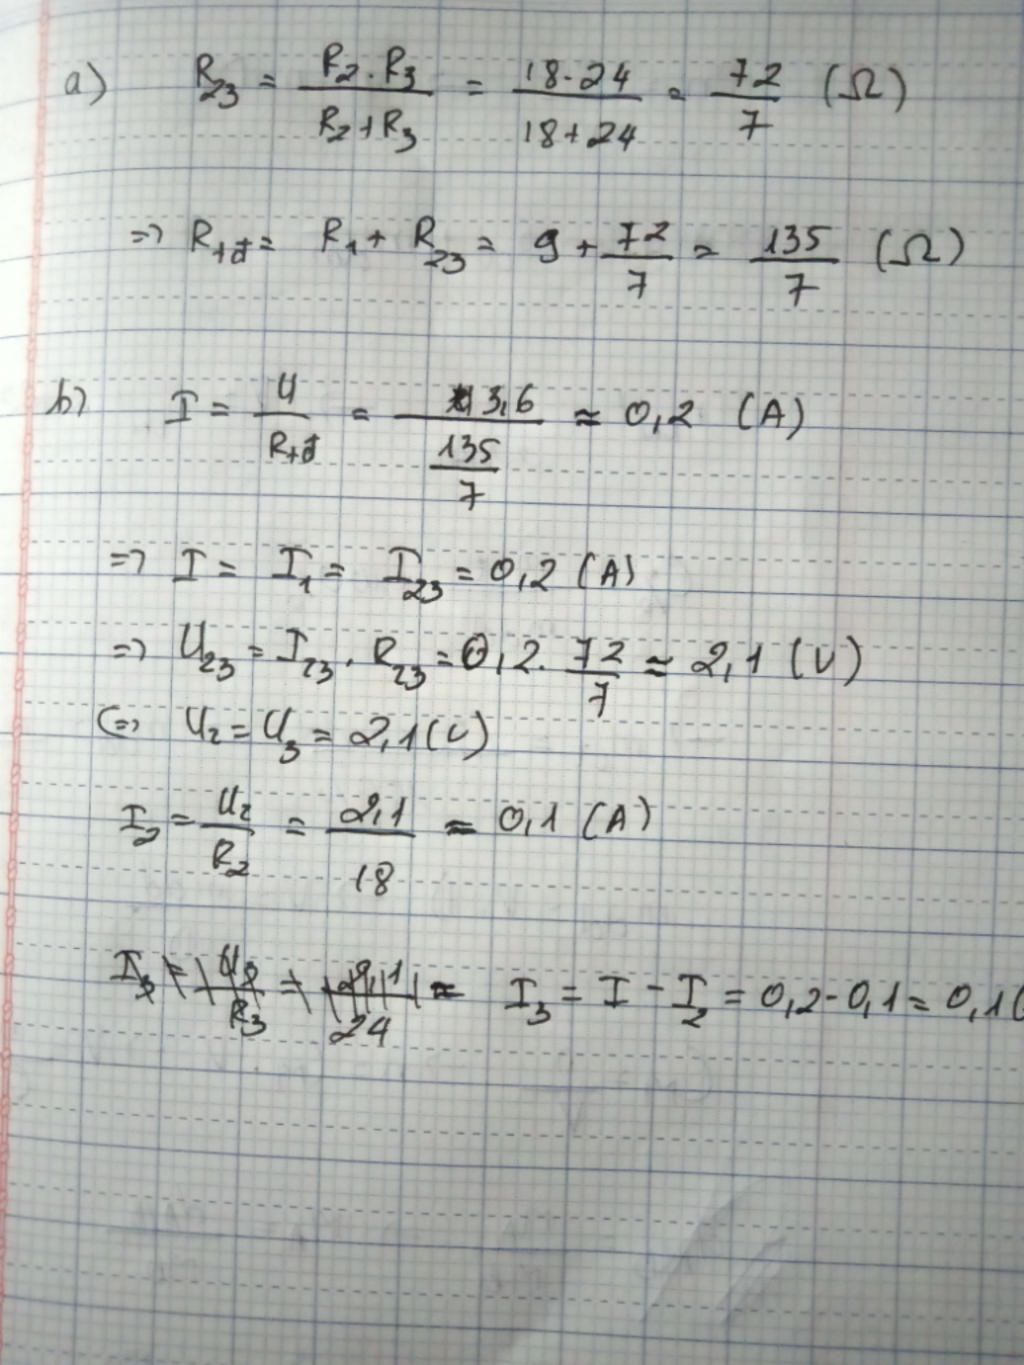 a) R₂₃ = (R₂.R₃)/(R₂+R₃) = (18.24)/(18+24) = 72/7 (Ω)
=> R₊đ = R₁ + R₂₃ = 9 + 72/7 = 135/7 (Ω)
b) I = U/R₊đ = 3,6/(135/7) ≈ 0,2 (A)
=> I = I₁ = I₂₃ = 0,2 (A)
=> U₂₃ = I₂₃ . R₂₃ = 0,2. 72/7 ≈ 2,1 (V)
(=> U₂ = U₃ = 2,1 (V)
I₂ = U₂/R₂ = 2,1/18 ≈ 0,1 (A)
I₃ = I - I₂ = 0,2 - 0,1 = 0,1 (